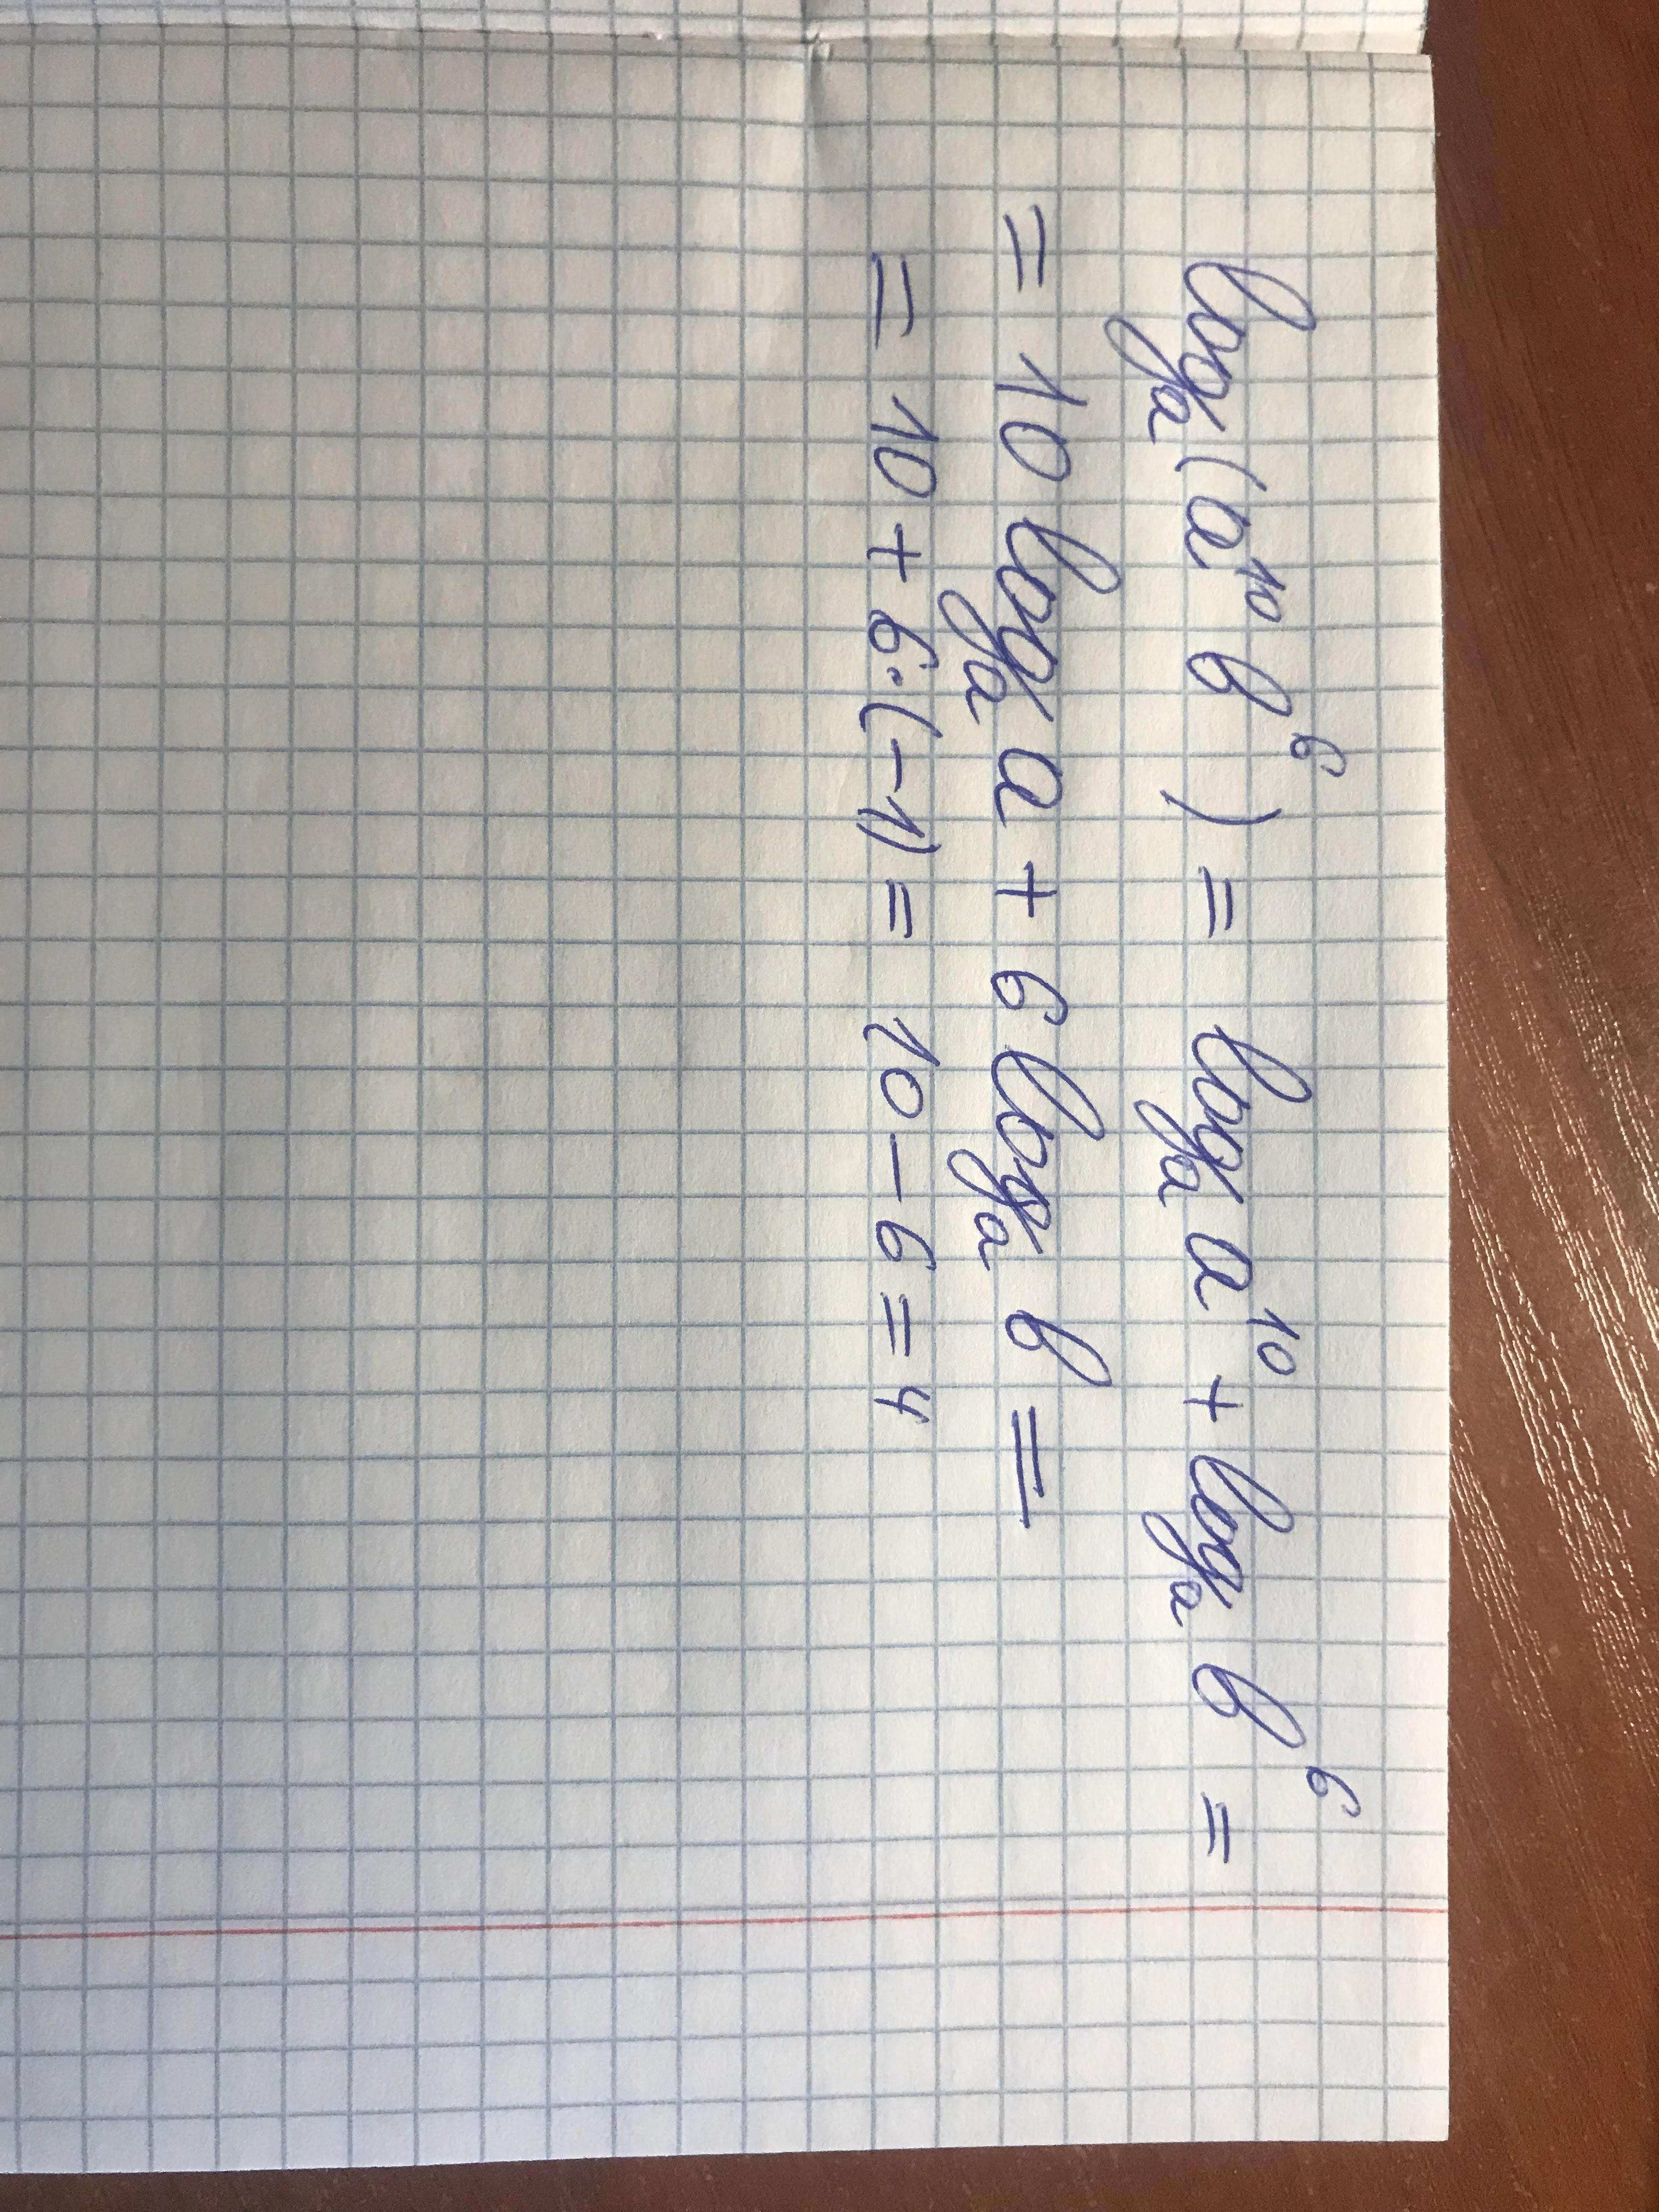 logₐ(a¹⁰b⁶) = logₐa¹⁰ + logₐb⁶ =
= 10 logₐa + 6 logₐb =
= 10 + 6·(-1) = 10 - 6 = 4